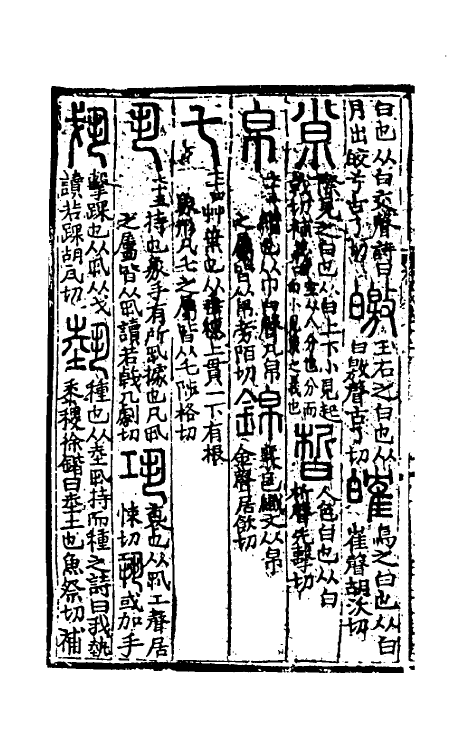 白也从白交聲詩曰
月出皎兮古了切
皦
玉石之白也从
白敫聲古了切
㿥
鳥之白也从白
隺聲胡沃切
𡭴
際見之白也从白上下小見起
戟切
晳
人色白也从白
析聲先擊切
帛
繒也从巾白聲凡帛
之屬皆从帛旁陌切
錦
襄色織文从帛
金聲居飲切
乇
艸葉也从垂穗上貫一下有根
象形凡乇之屬皆从乇陟格切
丮
持也象手有所丮據也凡丮
之屬皆从丮讀若戟几劇切
㧬
褱也从丮工聲居
悚切 或加手
𢧢
擊踝也从丮从戈
讀若踝胡瓦切
埶
種也从坴丮持而種之詩曰我埶
黍稷徐鍇曰坴土也魚祭切補